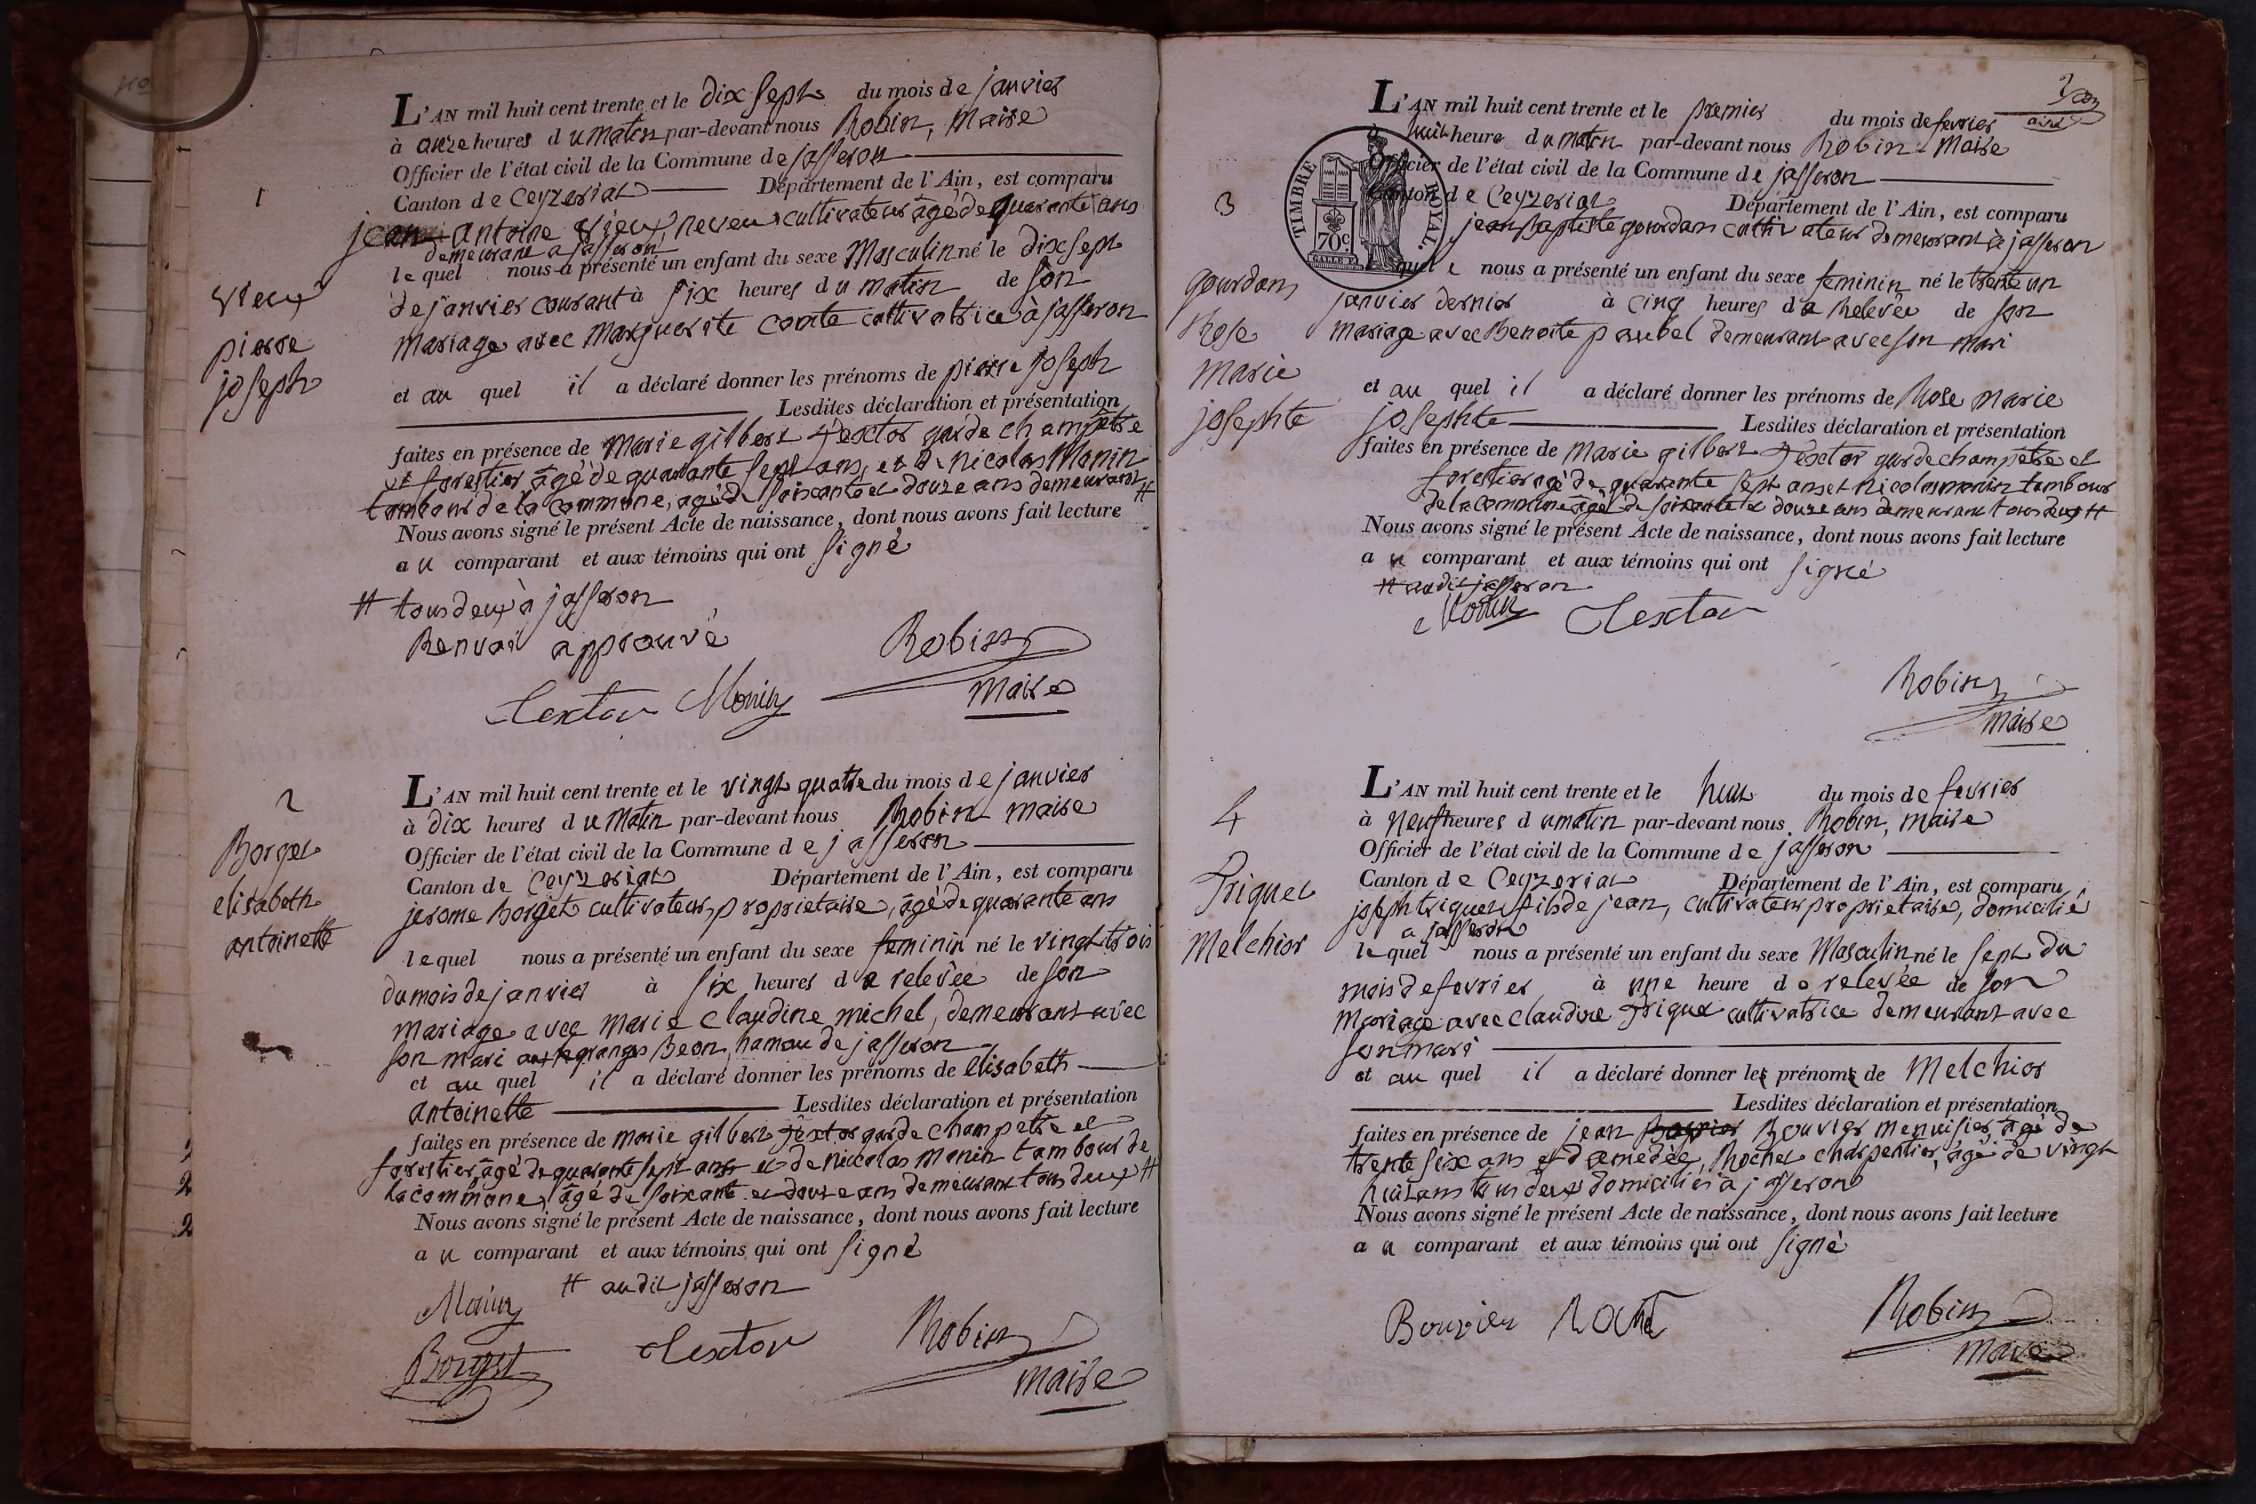 1
vieux
pierre
joseph
L'AN mil huit cent trente et le dix sept du mois de janvier
à onze heures du matin par-devant nous Robin, Maire
Officier de l'état civil de la Commune de jasseron
Canton de Ceyzeriat Département de l'Ain, est comparu
jean antoine vieux neveu cultivateur âgé de quarante ans
demeurant a jasseron
lequel nous a présenté un enfant du sexe Masculin né le dix sept
de janvier courant à six heures du matin de son
mariage avec Marguerite conte cultivatrice à jasseron
et au quel il a déclaré donner les prénoms de pierre joseph
Lesdites déclaration et présentation
faites en présence de Marie gilbert Textor garde champêtre
et forestier âgé de quarante sept ans, et de Nicolas Monin
tambour de la commune, agé de soixante et douze ans demeurant #
Nous avons signé le présent Acte de naissance, dont nous avons fait lecture
au comparant et aux témoins qui ont signé
# tous deux à jasseron
Renvoi approuvé
Robin
maire
Textor Monin
2
Borget
elisabeth
antoinette
L'AN mil huit cent trente et le vingt quatre du mois de janvier
à dix heures du Matin par-devant nous Robin maire
Officier de l'état civil de la Commune de jasseron
Canton de Ceyzeriat Département de l'Ain, est comparu
jerome Borget cultivateur, proprietaire, âgé de quarante ans
lequel nous a présenté un enfant du sexe feminin né le vingt trois
du mois de janvier à six heures de relevée de son
mariage avec marie claudine michel, demeurant avec
son mari granges Beon, hamau de jasseron
et au quel il a déclaré donner les prénoms de elisabeth
antoinette Lesdites déclaration et présentation
faites en présence de marie gilbert Textor garde champetre et
forestier âgé de quarante sept ans et de niccolas monin tambour de
la commune, âgé de soixante et douze ans demeurant tous deux #
Nous avons signé le présent Acte de naissance, dont nous avons fait lecture
au comparant et aux témoins qui ont signé
# audit jasseron
Monin
Borget Textor Robin
maire
3
gourdan
Rose
marie
josephte
L'AN mil huit cent trente et le premier du mois de fevrier
à huit heure du matin par-devant nous Robin Maire
Officier de l'état civil de la Commune de jasseron
Canton de Ceyzeriat Département de l'Ain, est comparu
TIMBRE ROYAL
70c.
jean Baptiste gourdan cultivateur demeurant à jasseron
quel nous a présenté un enfant du sexe feminin né le trente un
janvier dernier à cinq heures de Relevée de son
mariage avec Benoite paubel demeurant avec son mari
et au quel il a déclaré donner les prénoms de Rose marie
josephte Lesdites déclaration et présentation
faites en présence de Marie gilbert Textor garde champetre et
forestier agé de quarante sept ans et nicolas monin tambour
de la commune âgé de soixante et douze ans demeurant tous deux #
Nous avons signé le présent Acte de naissance, dont nous avons fait lecture
au comparant et aux témoins qui ont signé
# audit jasseron
Monin Textor
Robin
maire
4
Triquet
Melchior
L'AN mil huit cent trente et le huit du mois de fevrier
à neuf heures du matin par-devant nous Robin, maire
Officier de l'état civil de la Commune de jasseron
Canton de Ceyzeriat Département de l'Ain, est comparu
joseph triquet fils de jean, cultivateur proprietaire, domicilié
a jasseron
lequel nous a présenté un enfant du sexe Masculin né le sept du
mois de fevrier à une heure de relevée de son
Mariage avec claudine Triquet cultivatrice demeurant avec
son mari
et au quel il a déclaré donner les prénoms de Melchior
Lesdites déclaration et présentation
faites en présence de jean Bouvier menuisier âgé de
trente six ans et d'amedée, Rochet charpentier, âgé de vingt
huit ans tous deux domiciliés à jasseron
Nous avons signé le présent Acte de naissance, dont nous avons fait lecture
au comparant et aux témoins qui ont signé
Bouvier Robin
maire